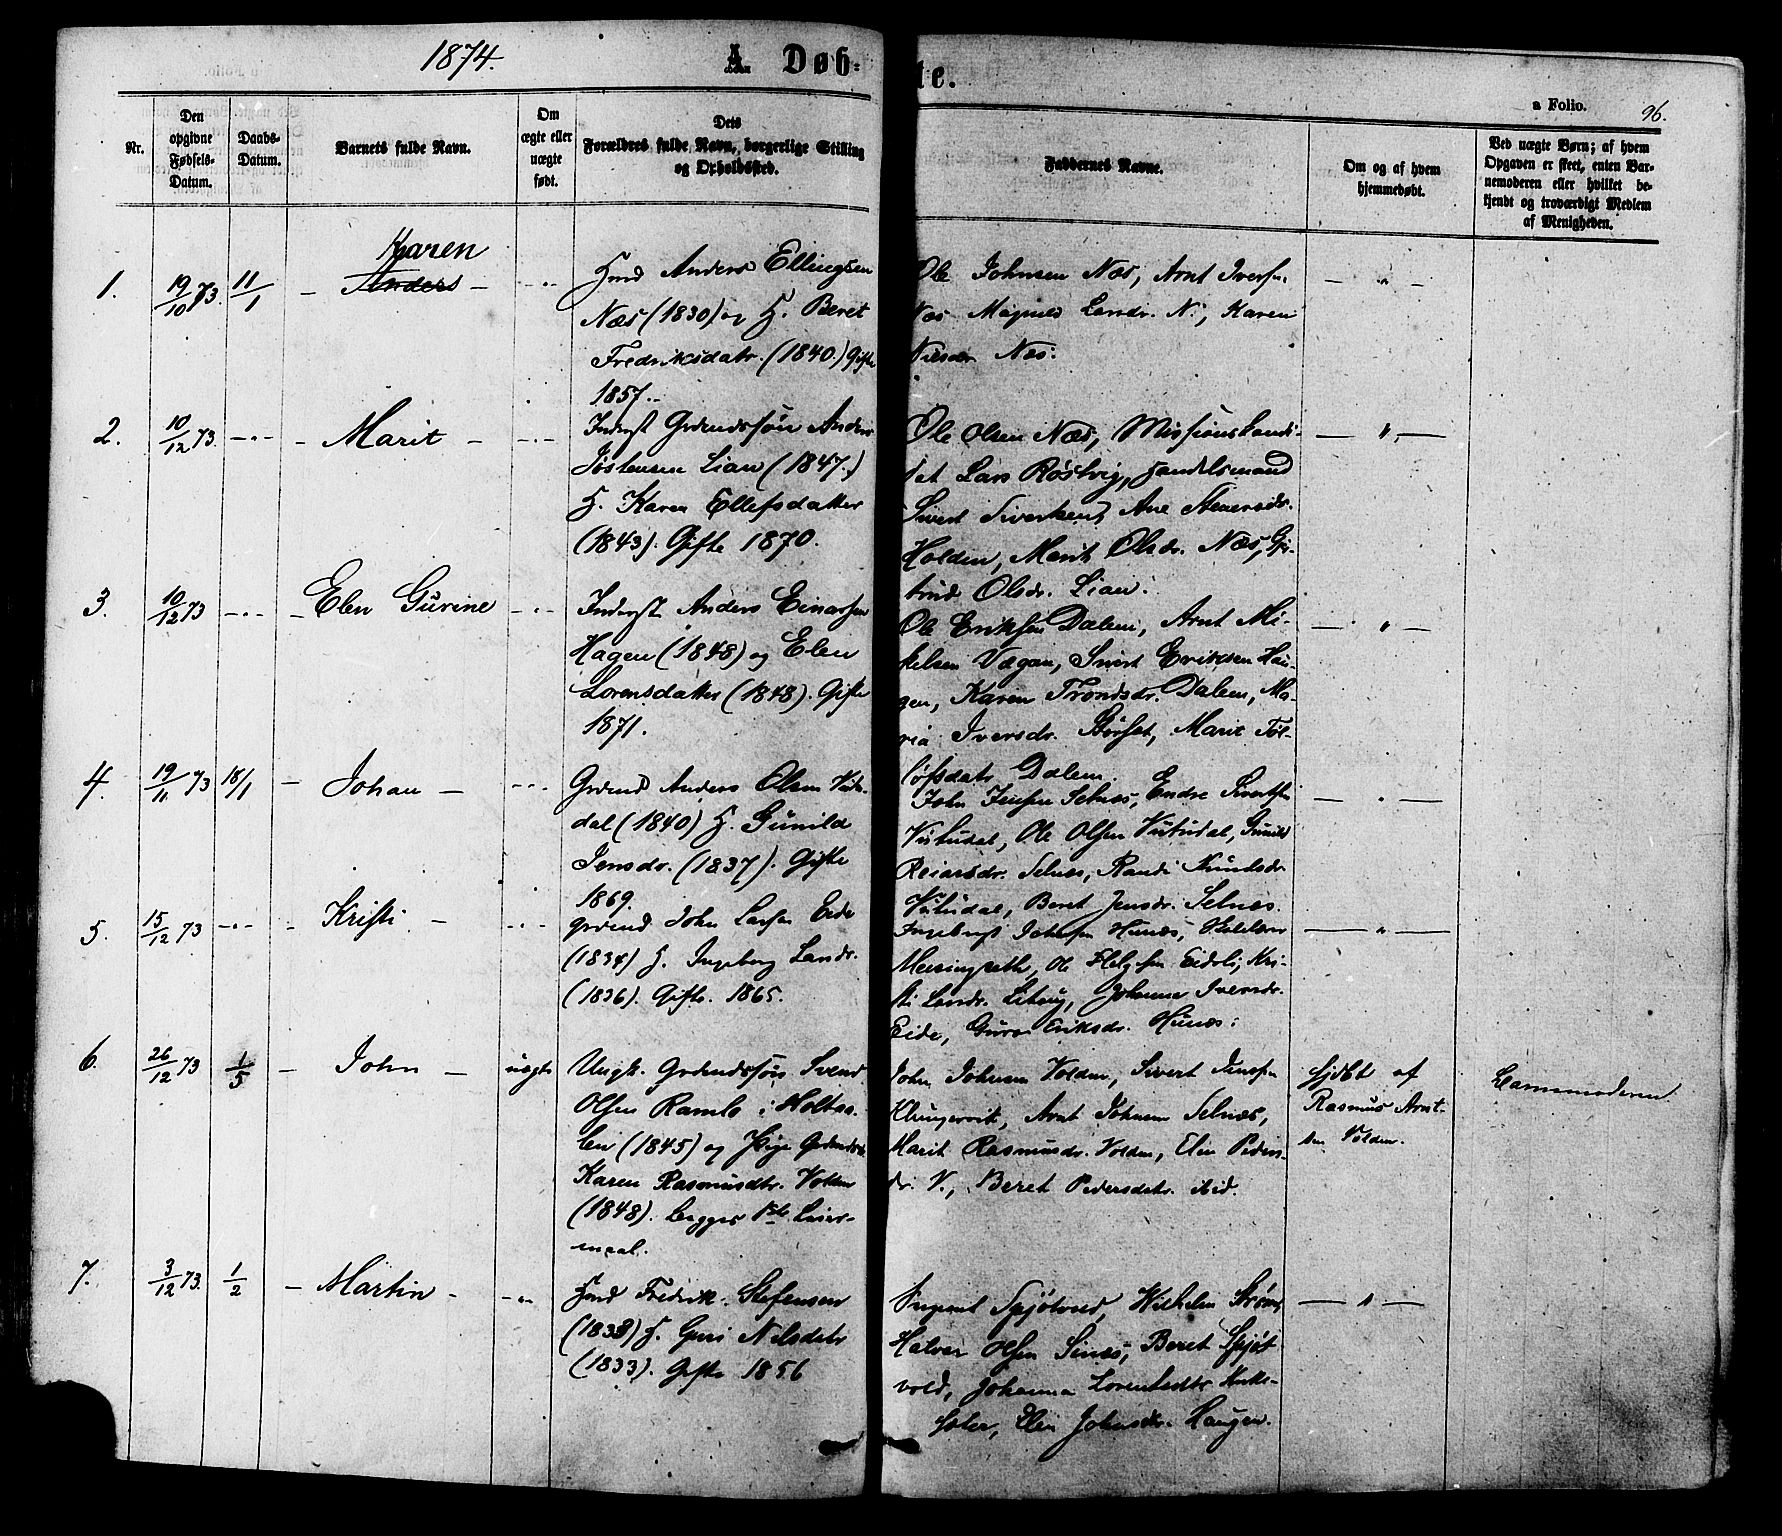 1874.
A. Døbte.
a Folio. 96.
Nr.
Den opgivne Fødsels-Datum.
Daabs-Datum.
Barnets fulde Navn.
Om ægte eller uægte født.
Dets Forældres fulde Navn, borgerlige Stilling og Opholdssted.
Faddernes Navne.
Om og af hvem hjemmedøbt.
Ved uægte Børn; af hvem Opgaven er skeet, enten Barnemoderen eller hvilket bekjendt og troværdigt Medlem af Menigheden.
Karen
1. 19/10 73. 11/1 – Anders – -"-
Hmd Anders Ellingsen
Næs (1830) og H. Beret
Fredriksdatr. (1840.) Gifte
1857.
Ole Johnsen Næs, Arnt Iversen
Næs Magnes Larsdr. N., Karen
Nilsdr. Næs.
2. 10/12 73. -"- – Marit – -"-
Inderst Grdmdssøn Anders
Jøstensen Lian (1847.)
H. Karen Ellefsdatter
(1843). Gifte 1870.
Ole Olsen Næs, Missionskandi-
dat Lars Røstvig, Handelsmand
Sivert Sivertsen, Ane Stenersdr.
Holden, Marit Olsdr. Næs, Gje-
trud Olsdr. Lian.
3. 10/12 73 -"- – Elen Gurine -"-
Inderst Anders Einarsen
Hagen (1848) og Elen
Lorensdatter (1848). Gifte
1871.
Ole Eriksen Dalem, Arnt Mi-
kelsen Vægan, Sivert Eriksen Hau-
gen, Karen Trondsdr. Dalem, Ma-
ria Iversdr. Børset, Marit Tol-
lofsdatr. Dalem.
4. 19/11 73 18/1 – Johan – -"-
Grdmd Anders Olsen Vutu-
dal (1840) H. Gunild
Jensdr. (1837). Gifte
1869.
John Jensen Selnæs, Endre Sivertsen
Vutudal, Ole Olsen Vutudal, Gunild
Reiarsdr. Selnæs, Randi Knudsdr.
Vutudal, Beret Jensdr. Selnæs.
5. 15/12 73 -"- – Kristi – -"-
Grdmd John Larsen Eide
(1834) H. Ingeborg Larsdr.
(1836). Gifte. 1865.
Ingebrigt Johnsen Hunæs,
Meisingseth, Ole Helgesen Eidsli, Kri-
sti Larsdr. Johanna Iversdr.
Eide, Guro Eriksdr. Hunæs.
6. 26/12 73 1/5 – John – uægte
Ungk. Grdmdssøn Svend
Olsen Ramlo i Holtaa-
len (1845) og Pige Grdmdsd.
Karen Rasmusdtr. Volden
(1848). Begges 1ste Leier-
maal.
John Johnsen Volden, Sivert Jensen
Klungervik, Arnt Johnsen Selnæs,
Marit Rasmusdr. Volden, Elen Peders-
dr. V., Beret Pedersdatr. ibid.
Hjdbt af
Rasmus Arnt-
sen Volden.
Barnemoderen
7. 3/12 73. 1/2 – Martin – -"-
Hmd Fredrik Stefensen
(1833) H. Guri Nilsdatr
(1833). Gifte 1856
Ingemt Spjøtvold, Wilhelm Strøm,
Halvor Olsen Sinæs, Beret Spjøt-
vold, Johanna Lorentsdtr
Elen Johnsdr. Haugen.